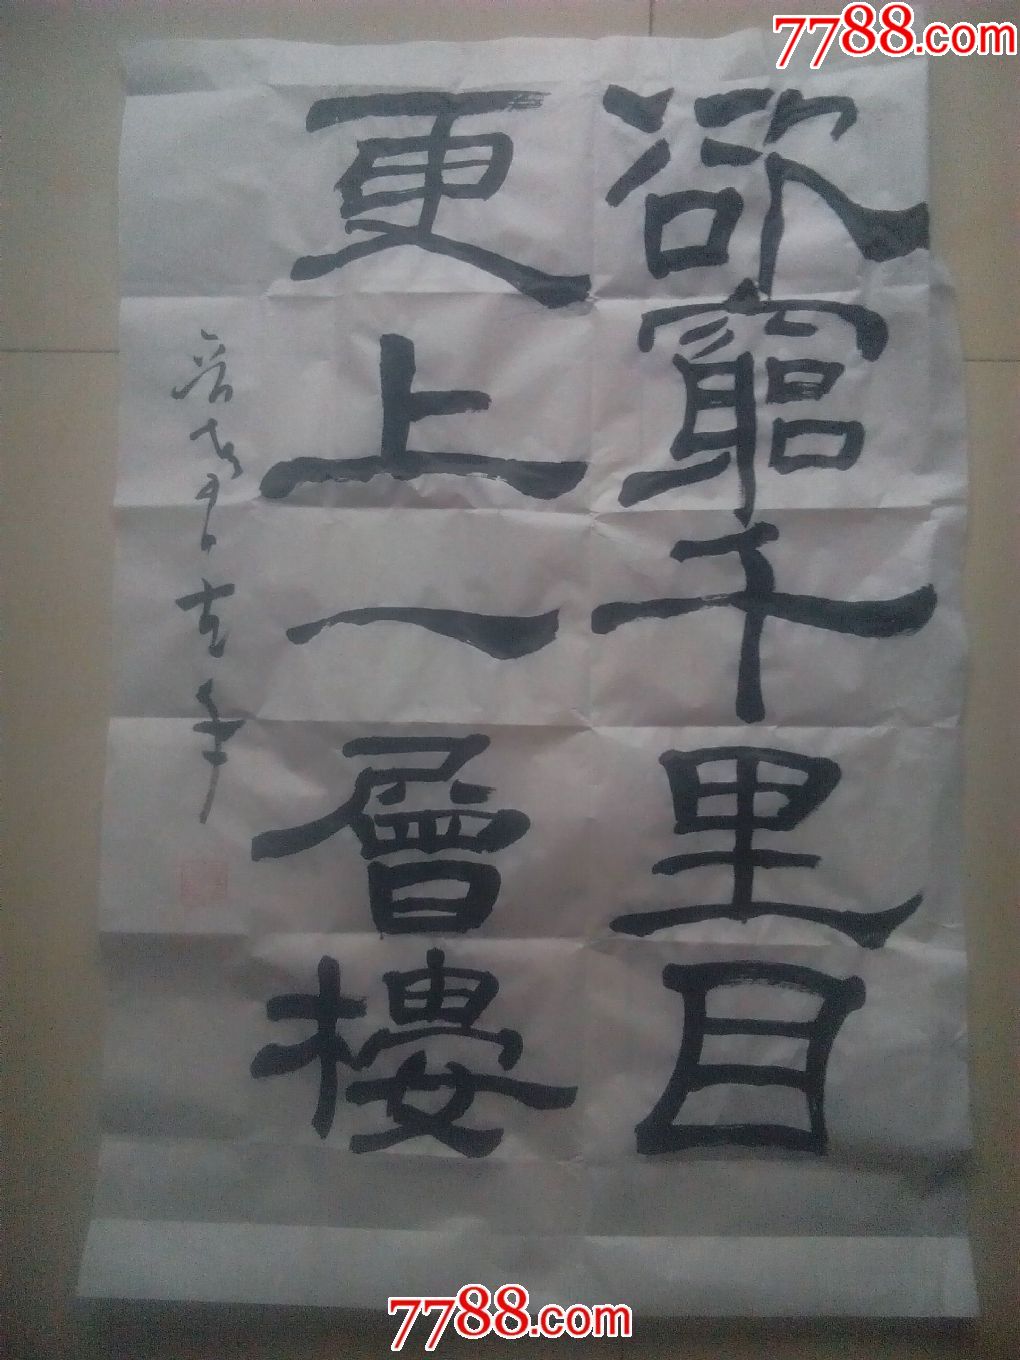 7788.com
欲窮千里目
更上一層樓
7788.com